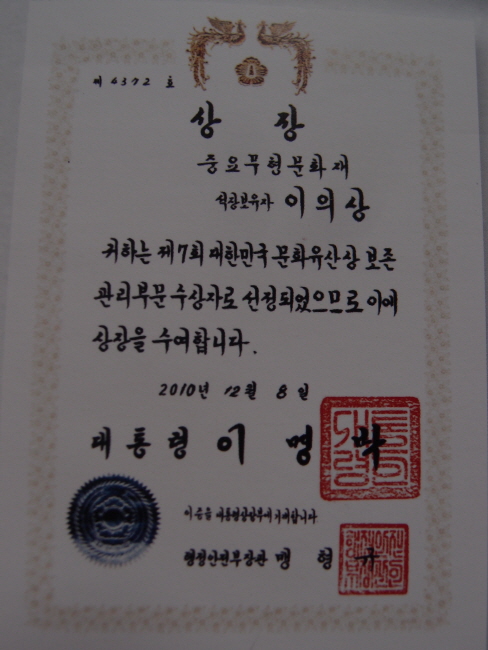 제 4372 호
상 장
중요무형문화재
석장보유자 이의상
귀하는 제7회 대한민국 문화유산상 보존
관리부문 수상자로 선정되었으므로 이에
상장을 수여합니다.
2010년 12월 8일
대통령 이명박
이 증을 대통령상장부에 기재합니다
행정안전부장관 맹형규